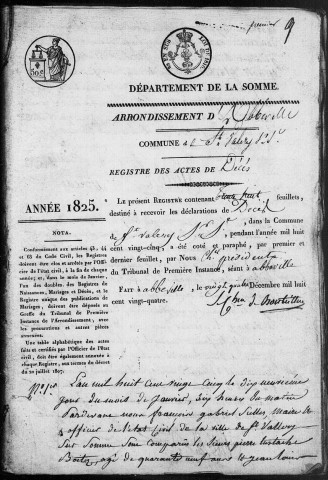 premier 9
DÉPARTEMENT DE LA SOMME.
ARRONDISSEMENT D'Abbeville
COMMUNE de St Valery
REGISTRE DES ACTES DE Décès
ANNÉE 1825.
NOTA.
Conformément aux articles 43, 44
et 63 du Code Civil, les Registres
doivent être clos et arrêtés par l'Offi-
cier de l'État civil, à la fin de chaque
année; et dans le mois de Janvier,
l'un des doubles des Registres de
Naissances, Mariages et Décès, et le
Registre unique des publications de
Mariages, doivent être déposés au
Greffe du Tribunal de Première
Instance de l'Arrondissement, avec
les procurations et autres pièces
annexées.
Une table alphabétique des actes
faits et certifiés par l'Officier de l'État
civil, doit être également annexée à
chaque Registre, aux termes du décret
du 20 juillet 1807.
Le présent REGISTRE contenant huit feuillets,
destiné à recevoir les déclarations de Décès
dans la Commune
de St Valery pendant l'année mil huit
cent vingt-cinq, a été coté et paraphé, par premier et
dernier feuillet, par Nous président
du Tribunal de Première Instance, séant à abbeville
FAIT à abbeville, le vingt quatre Décembre mil huit
cent vingt-quatre.
L'an mil huit cent vingt Cinq le dix neuvieme
jour du mois de janvier, dix heures du matin
Pardevant nous françois gabriel maire
officier de l'état Civil de la ville de St Vallery
Sur Somme Sont Comparus les Sieurs pierre eustache
agé de quarante neuf ans et jean louis